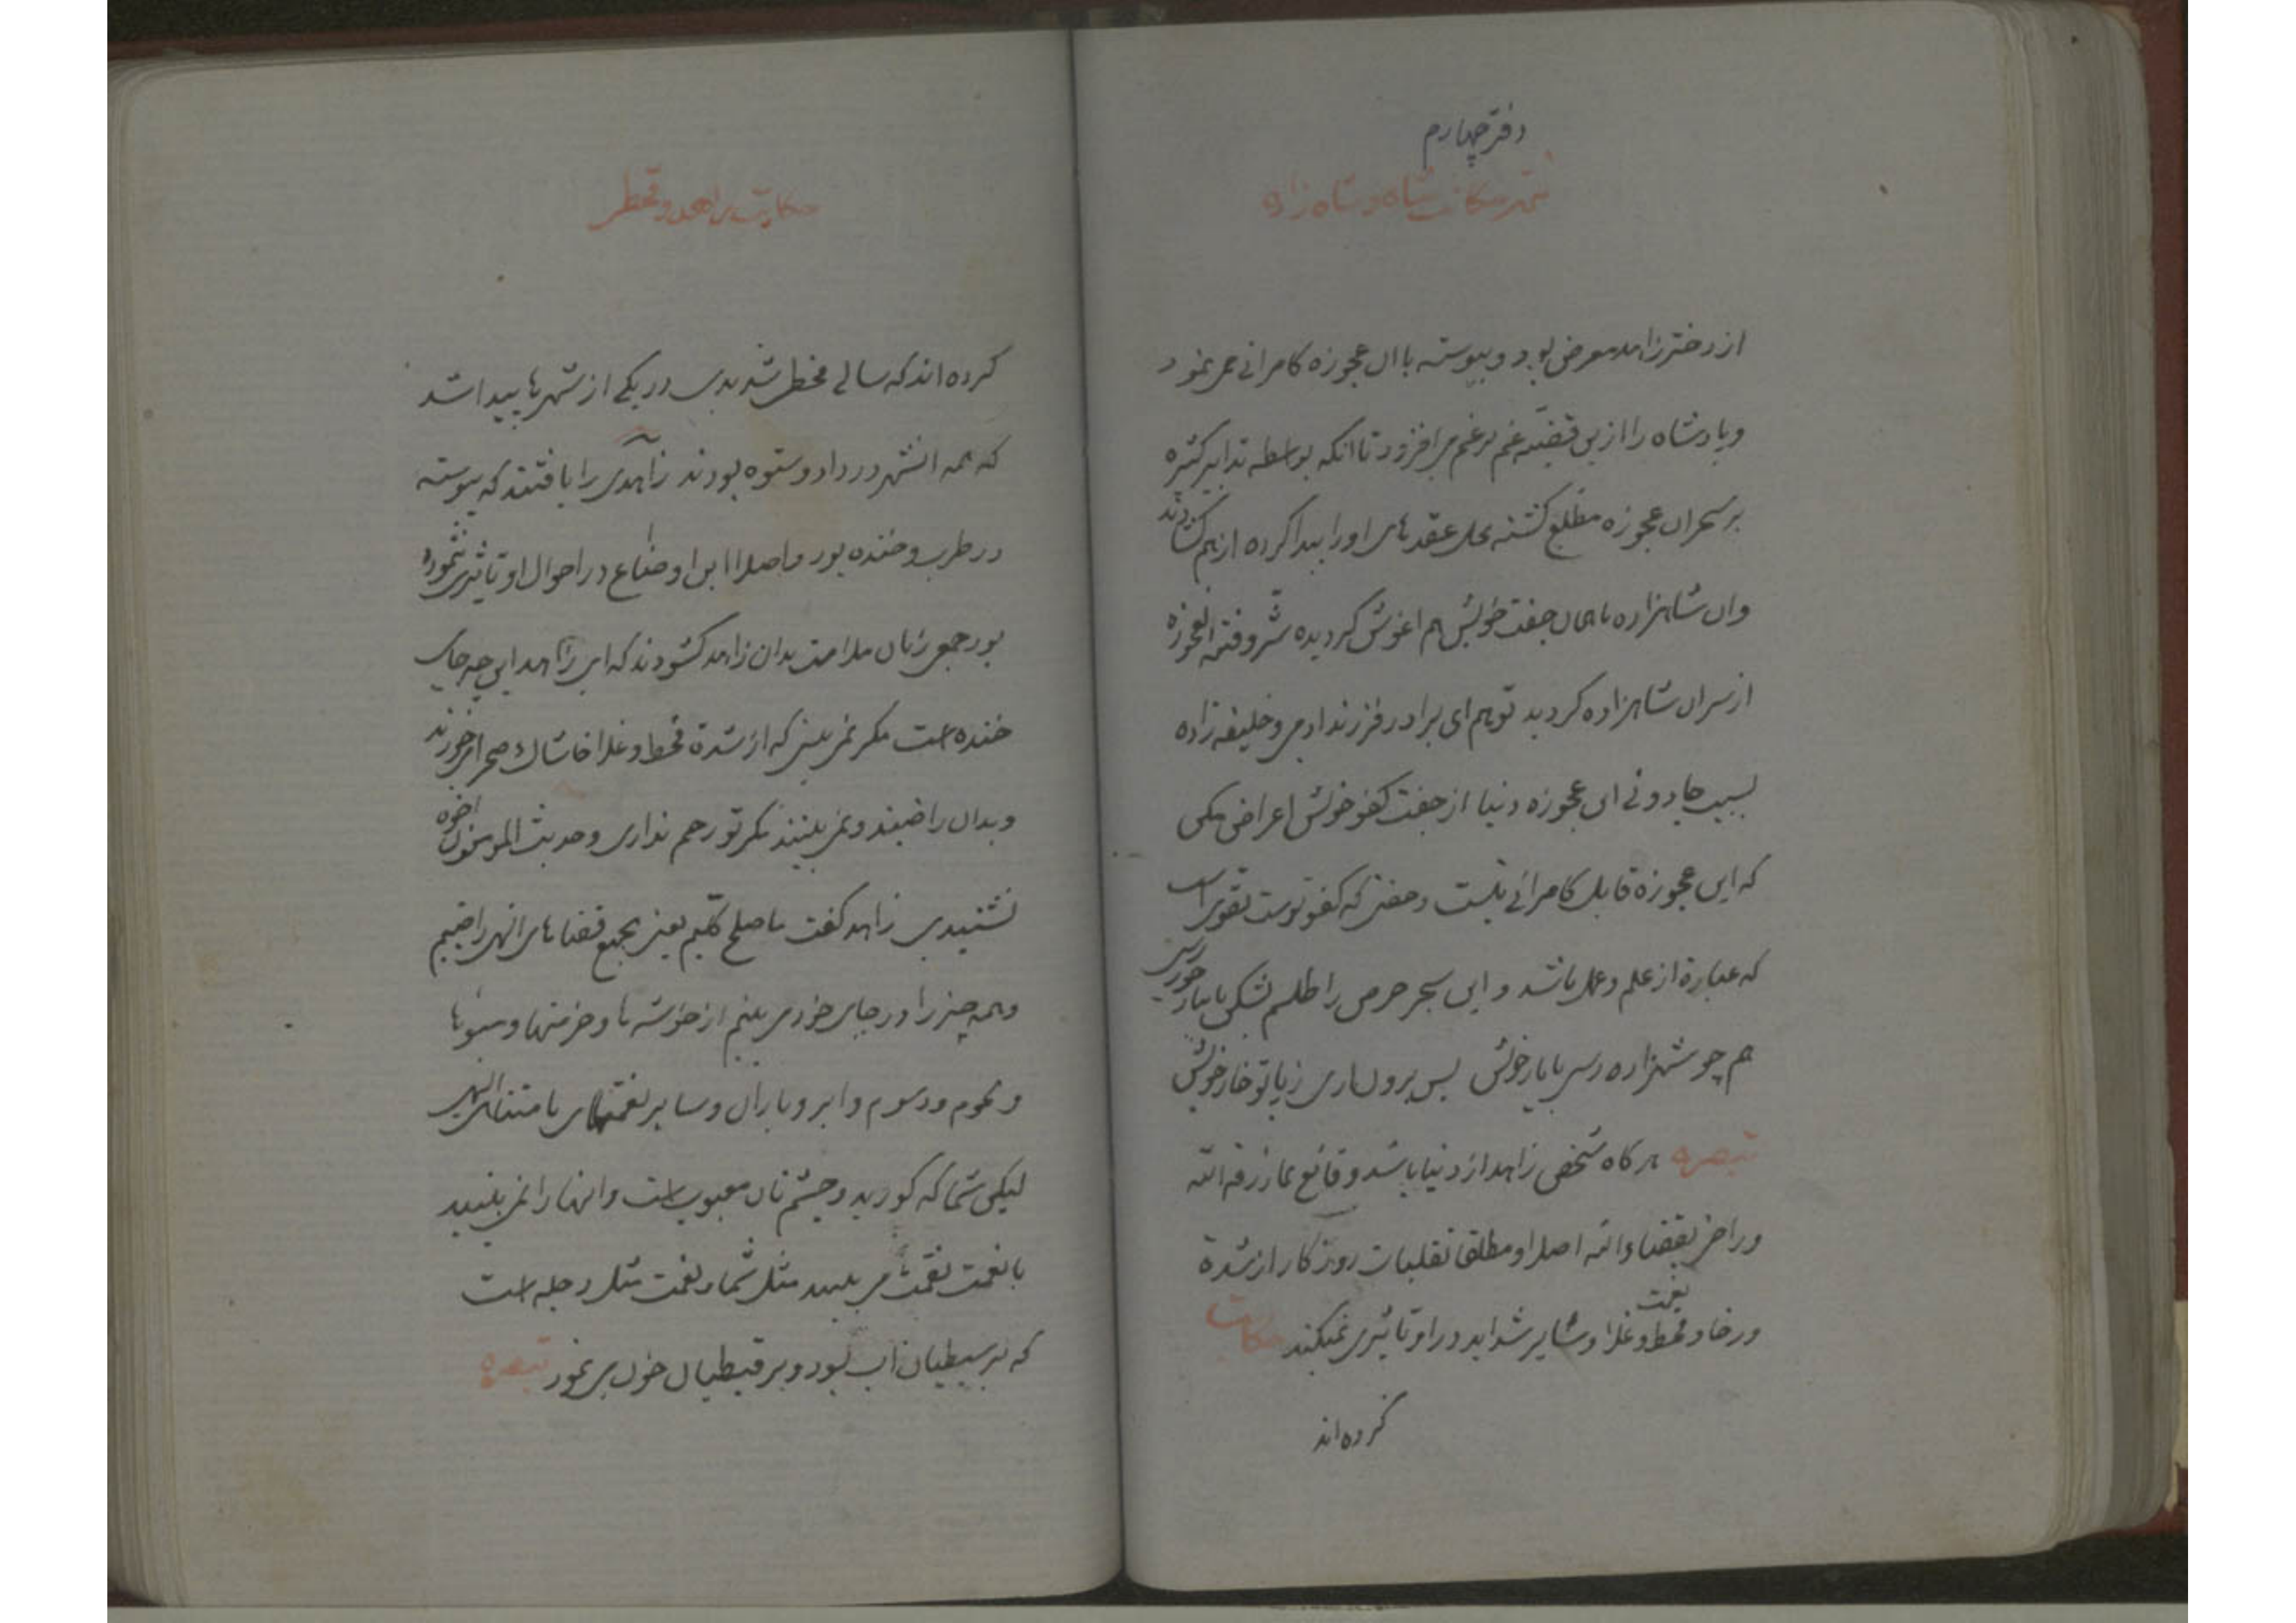 دفتر چهارم
تتمه حکایت شاه و شاه زاده
از دختر زاهد معرض بود و پیوسته با ان عجوزه کامرانی می نمود
و پادشاه را ازین قضیه غم بر غم می افزود تا انکه بواسطه تدابیر کثیره
بر سحر ان عجوزه مطلع کشته محل عقدهای او را پیدا کرده از هم کشادند
وان شاهزاده با همان جفت خویش هم اغوش کردیده شر و فتنه العجوزه
از سر ان شاهزاده کردید توهم ای برادر فرزند ادمی و خلیفه زاده
بسبب جادوئی این عجوزه دنیا از جفت کفو خویش اعراض مکن
که این عجوزه قابل کامرانی نیست و جفتی که کفو توست تقوی است
که عبارة از علم و عمل باشد و این سحر حرص را طلسم بشکن با یار خود رسی
هم چو شهزاده رسی با یار خویش پس برون اری ز پا تو خار خویش
تبصره هر کاه شخص زاهد از دنیا باشد و قانع بما رزقه الله
و راضی بقضاء الله اصلا و مطلقا تقلبات روزکار از شدة
و رخا و نعمت و قحط و غلا و سایر شداید در او تاثیری نمیکند حکایت
کرده اند
حکایت زاهد و قحط
کرده اند که سالی قحط شدیدی در یکی از شهرها پیدا شد
که همه انشهر در داد و ستوه بودند زاهدی را یافتند که پیوسته
در طرب و خنده بود و اصلا این اوضاع در احوال او تاثیری ننموده
بود جمعی زبان ملامت بدان زاهد کشودند که ای زاهد این چه جای
خنده است مکر نمی بینی که از شدة قحط و غلا خاشاک صحرا میخورند
و بدان راضیند و نمی بینند مکر تو رحم نداری و حدیث المومنون اخوه
نشنیدی زاهد کفت ما صلح کلیم یعنی بجمیع قضاهای الهی راضیم
و همه چیز را در جای خود می بینم از خوشه ها و خرمنها و سبوها
و نجوم و رسوم و ابر و باران و سایر نعمتهای نامتناهی الهی
لیکن شما که کورید و چشم تان معیوب است و انها را نمی بینید
با نعمت نقمت می بینید مثل شما و نعمت مثل دجله است
که بر سبطیان اب بود و بر قبطیان خون می نمود تبصره